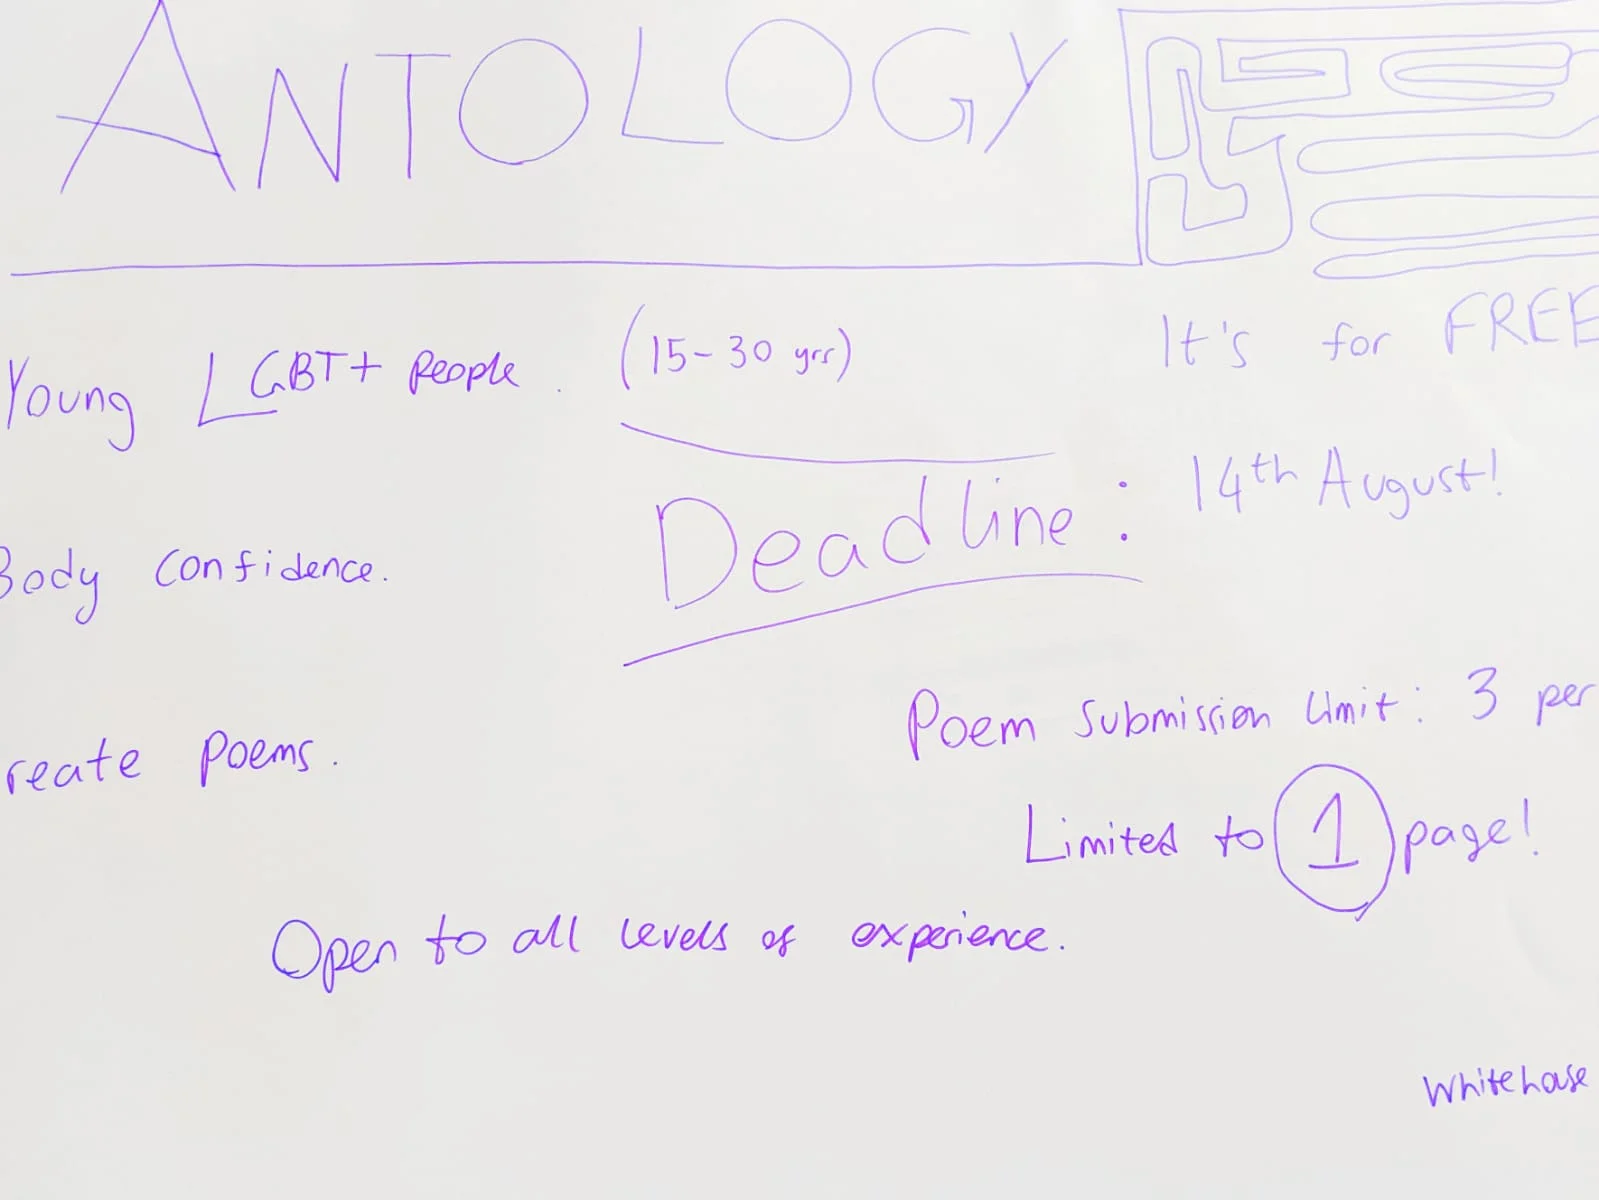 ANTOLOGY
Young LGBT+ People. (15-30 yrs)
It's for FREE
Deadline: 14th August!
Body confidence.
Poem submission limit: 3 per
reate poems.
Limited to 1 page!
Open to all levels of experience.
Whitehouse